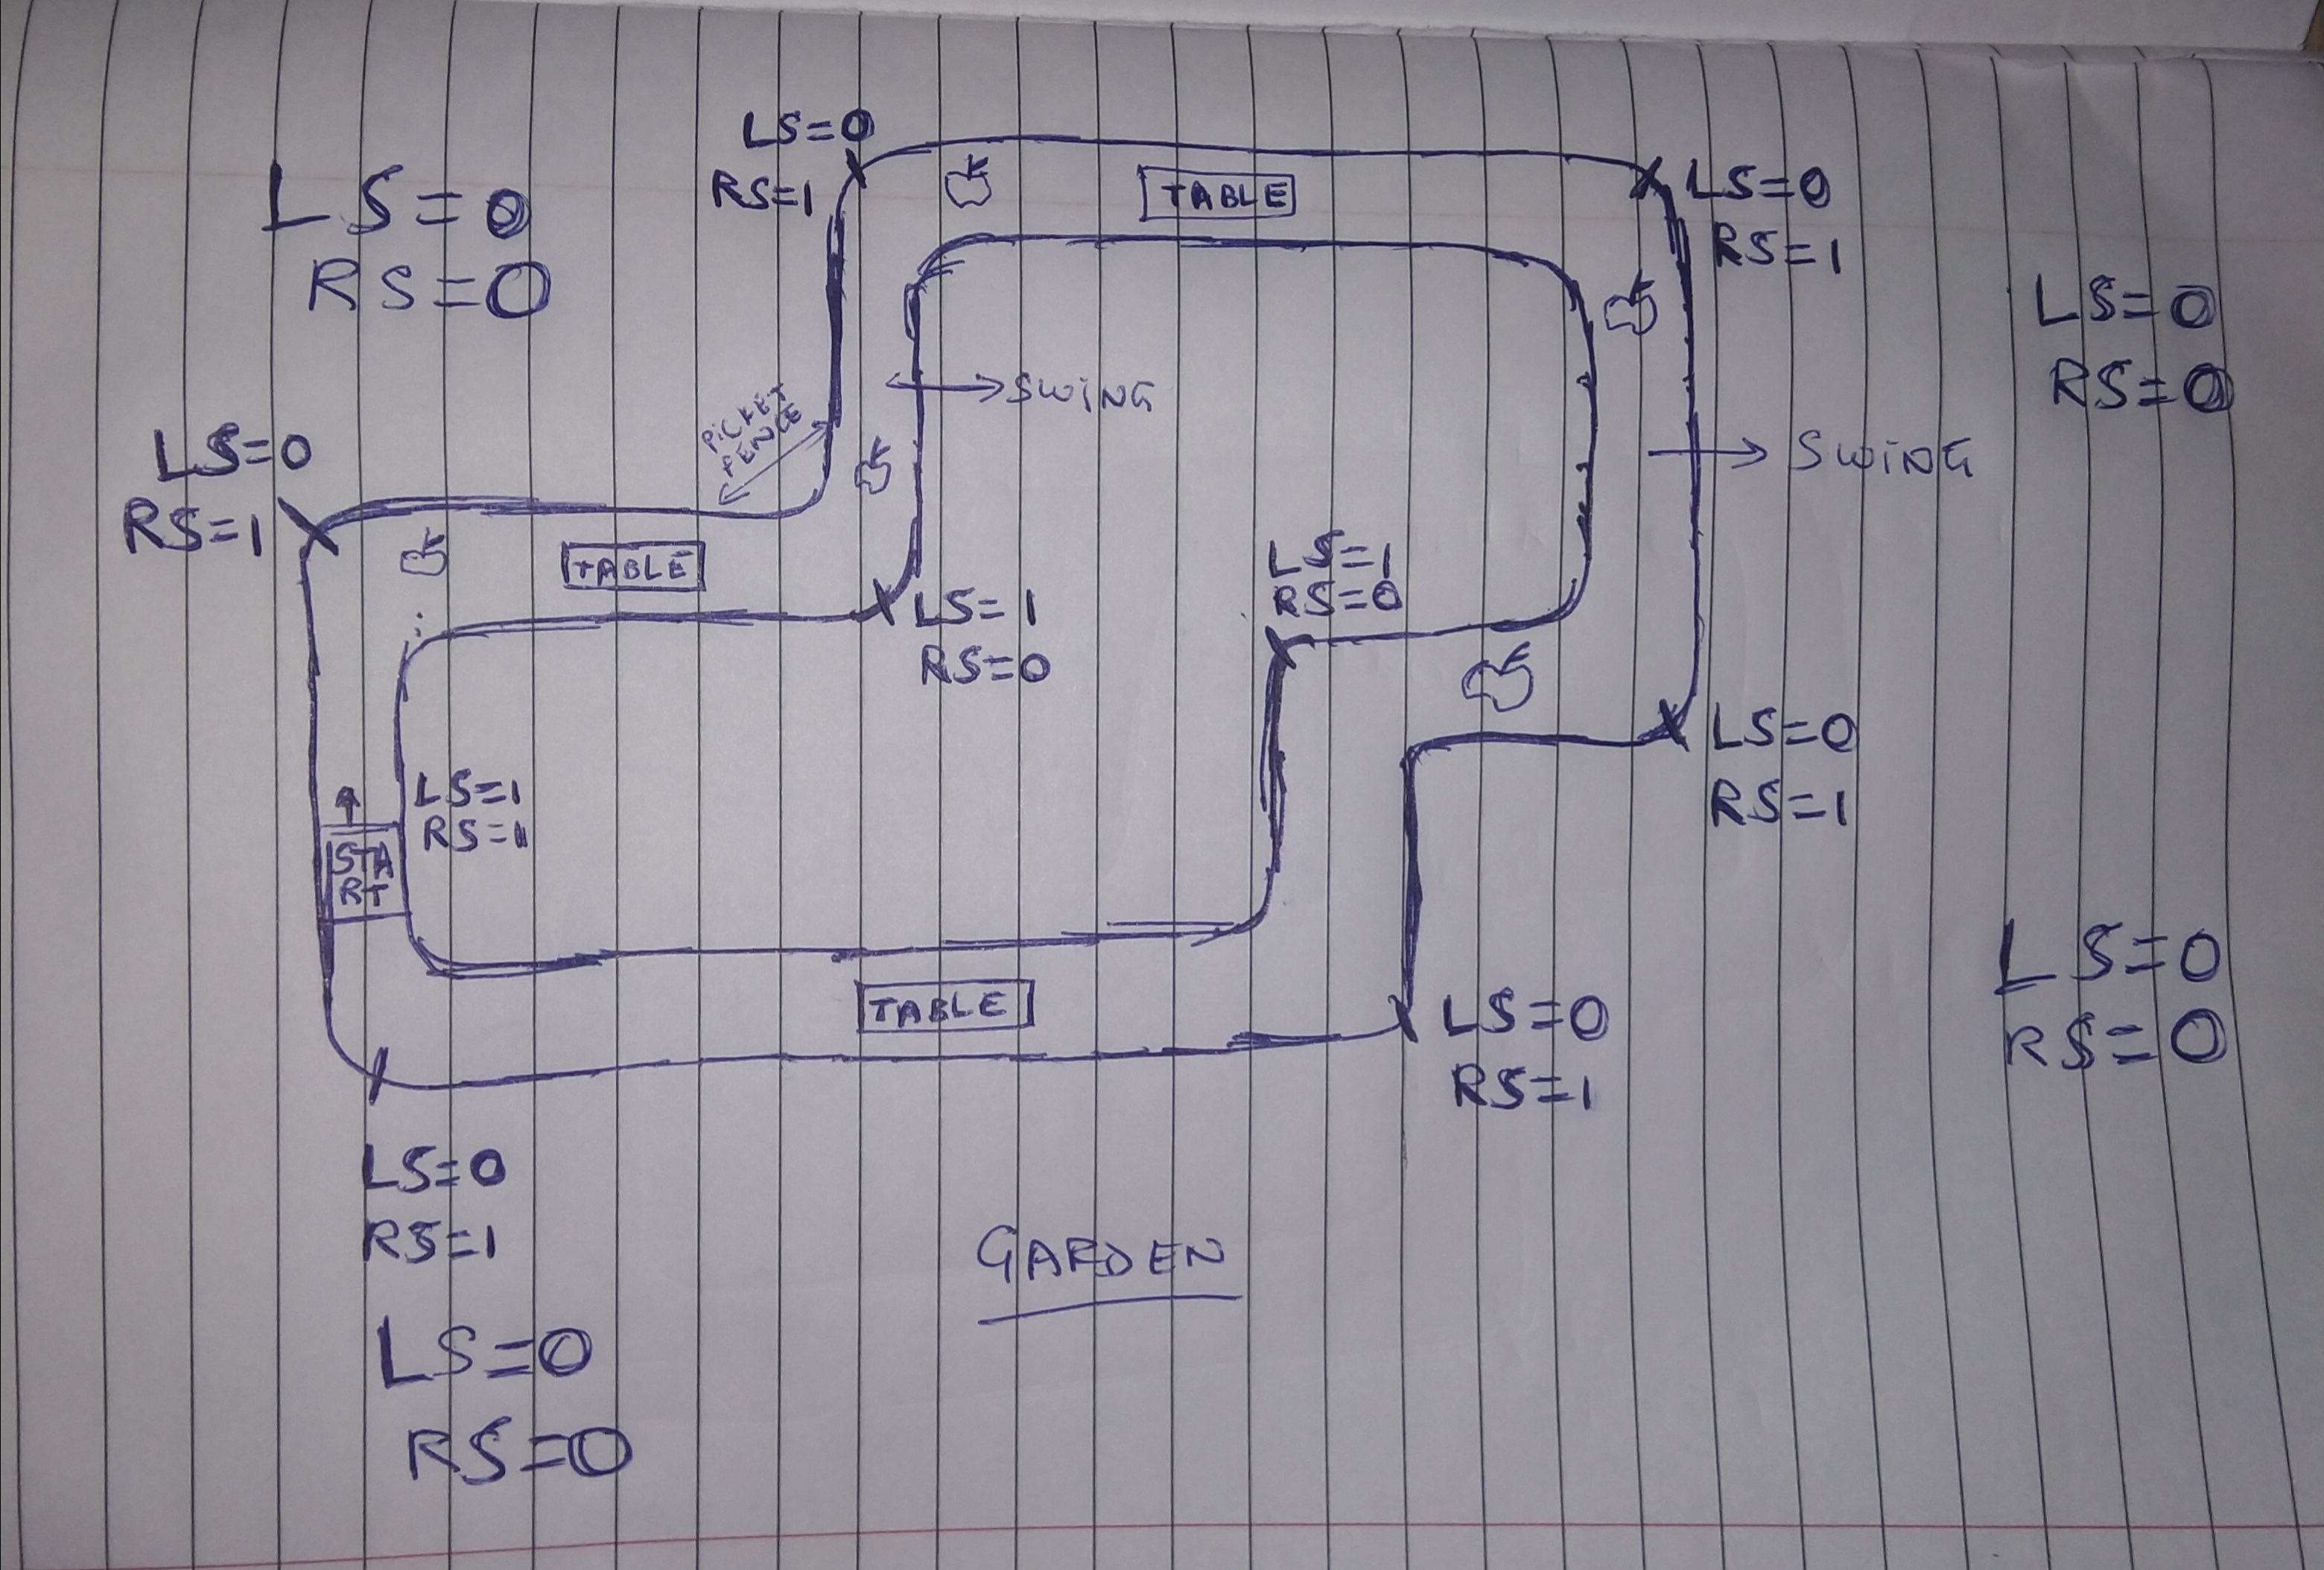 LS=0
RS=1
LS=0
RS=0
TABLE
LS=0
RS=1
LS=0
RS=0
SWING
PICKET
FENCE
LS=0
RS=1
SWING
TABLE
LS=1
RS=0
LS=1
RS=0
LS=0
RS=1
LS=1
RS=1
STA
RT
TABLE
LS=0
RS=1
LS=0
RS=0
LS=0
RS=1
GARDEN
LS=0
RS=0